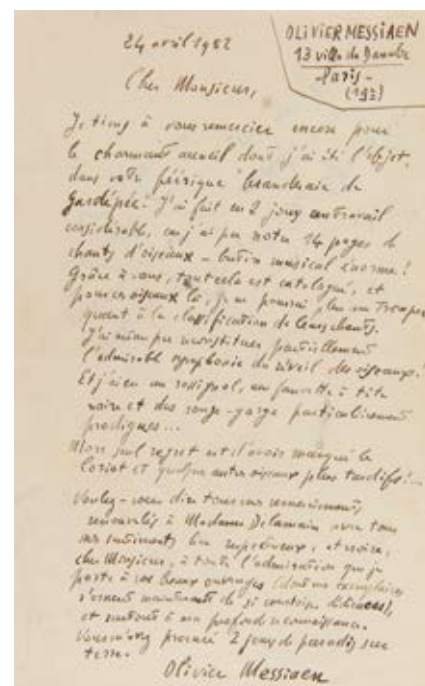 24 avril 1952
OLIVIER MESSIAEN
13 villa du Danube
- Paris -
(19e)
Cher Monsieur,
Je tiens à vous remercier encore pour
le charmant accueil dont j'ai été l'objet,
dans votre féérique de
Gardépée. J'ai fait en 2 jours un travail
considérable, car j'ai pu noter 14 pages de
chants d'oiseaux - butin musical énorme !
Grâce à vous, tout cela est catalogué, et
pour ces oiseaux là, je ne pourrai plus me tromper
quant à la classification de leurs chants.
J'ai même pu reconstituer partiellement
l'admirable symphonie du réveil des oiseaux !
Et j'ai eu un rossignol, une fauvette à tête
noire et des rouge-gorge particulièrement
prodigues...
Mon seul regret est d'avoir manqué le
loriot et quelques autres oiseaux plus tardifs !...
Voulez-vous dire tous mes remerciements
renouvelés à Madame Delamain avec tous
mes sentiments les respectueux, et croire,
cher Monsieur, à toute l'admiration que je
porte à vos beaux ouvrages (dont mes exemplaires
s'ornent maintenant de si dédicaces),
et surtout à ma profonde reconnaissance.
Vous m'avez procuré 2 jours de paradis sur
terre.
Olivier Messiaen